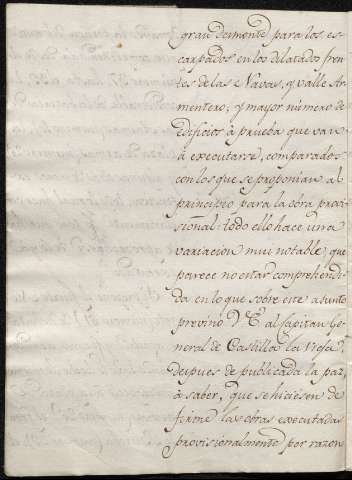 gran desmonte para los es-
carpados en los dilatados fren
tes de las Navas, y valle Ar-
mentero; y mayor número de
edificios à prueba que van
à executarse, comparados
con los que se proponian al
principio para la obra provi
sional: todo ello hace una
variacion mui notable, que
parece no estar comprehendi-
da en lo que sobre este asunto
previno V.E. al Capitan Ge-
neral de Castilla la Vieja,
despues de publicada la paz,
à saber, que se hiciesen de
firme las obras executadas
provisionalmente por razon